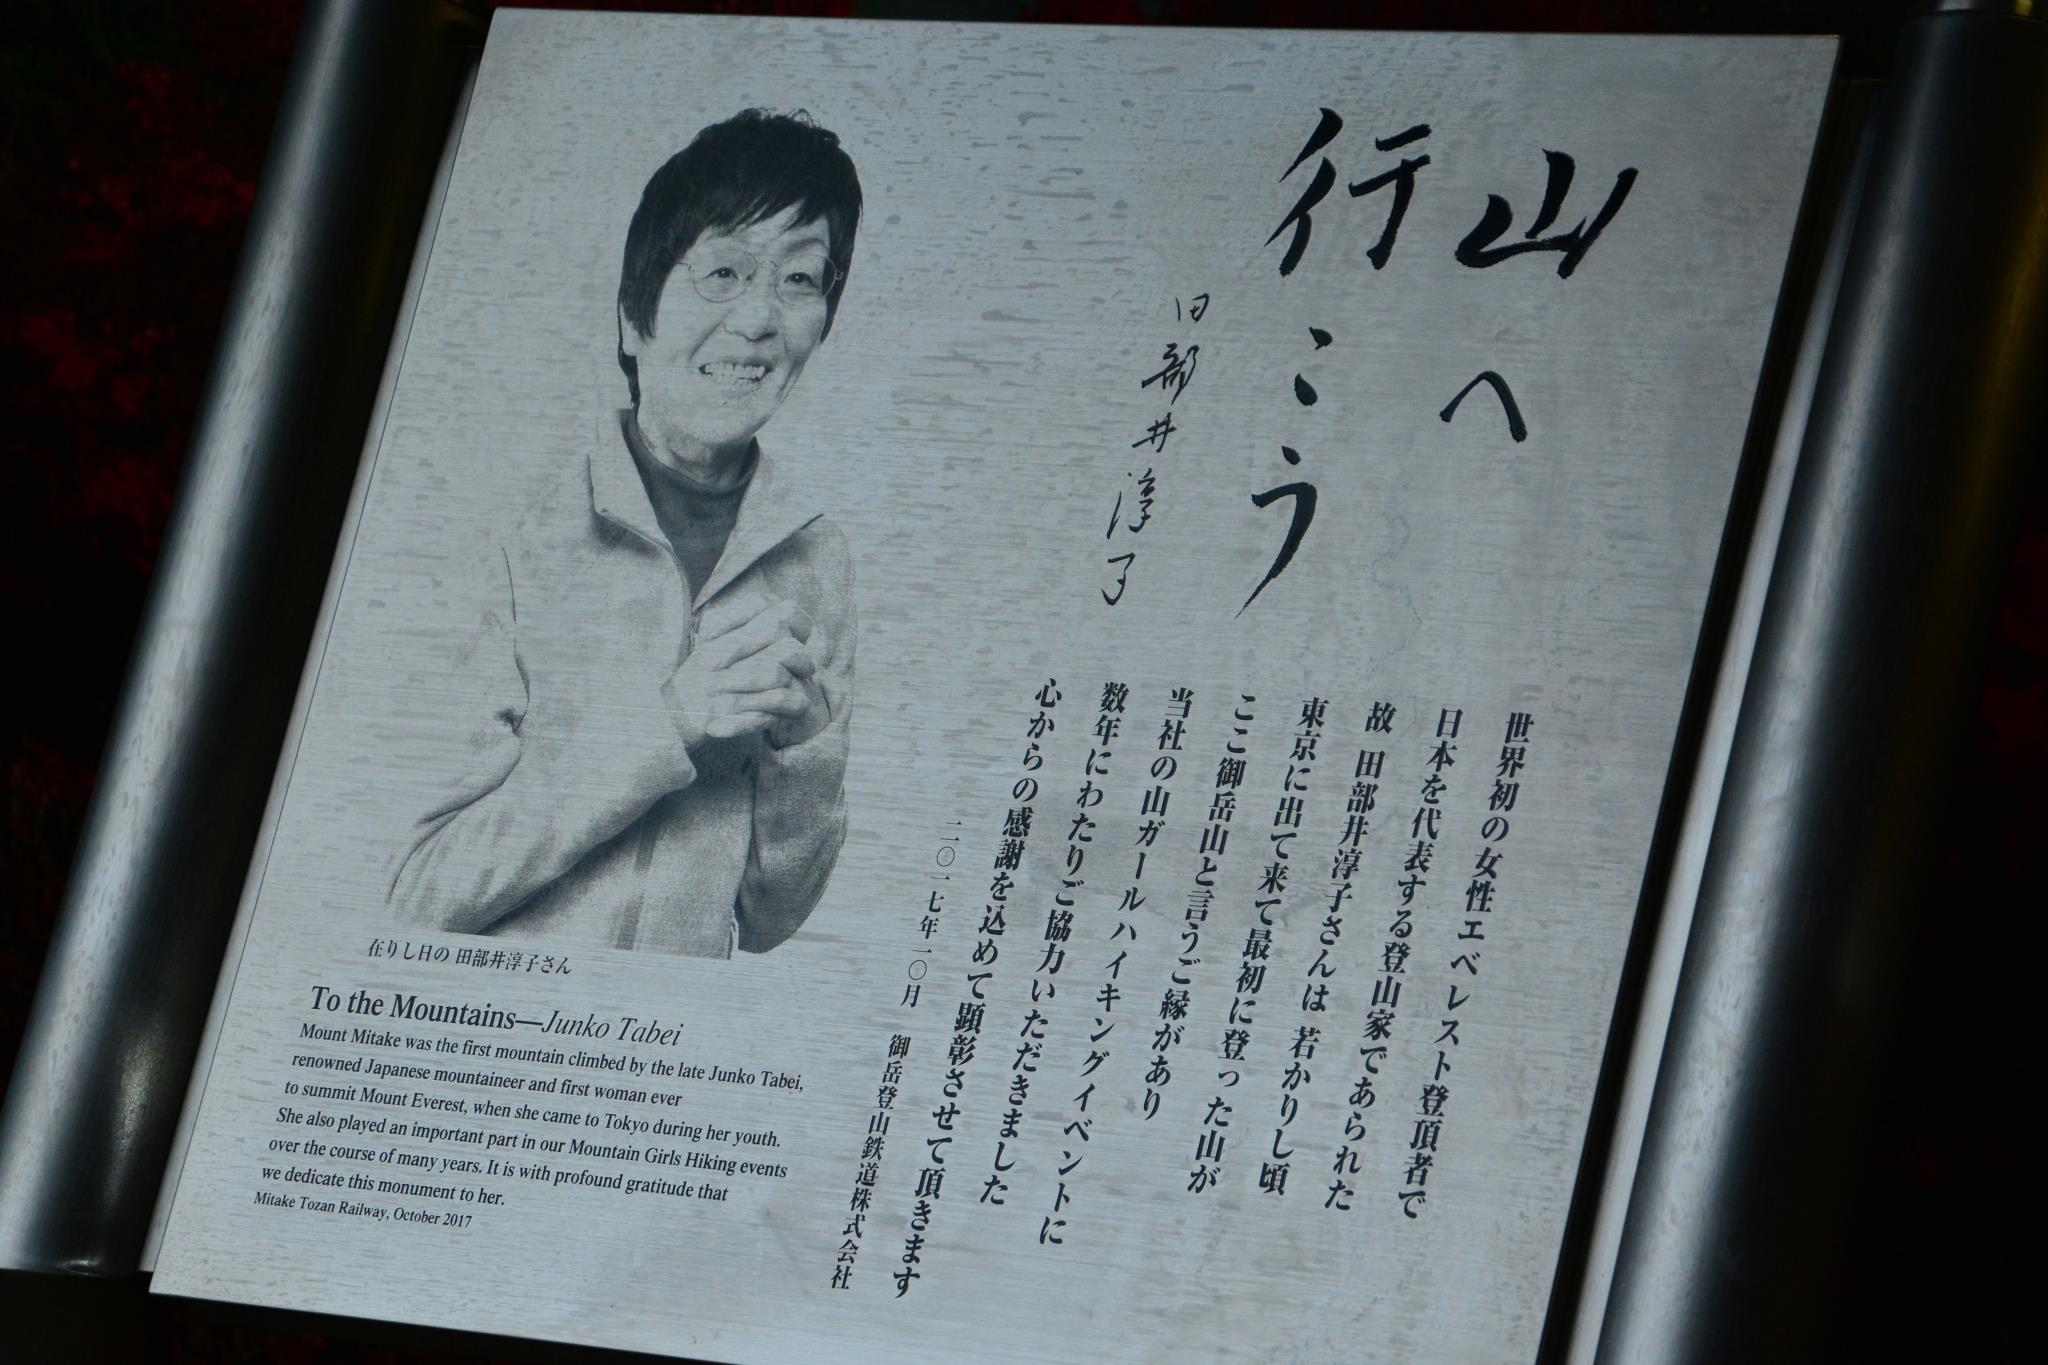 山へ
行こう
田部井淳子
世界初の女性エベレスト登頂者で
日本を代表する登山家であられた
故 田部井淳子さんは 若かりし頃
東京に出て来て最初に登った山が
ここ御岳山と言うご縁があり
当社の山ガールハイキングイベントに
数年にわたりご協力いただきました
心からの感謝を込めて顕彰させて頂きます
二〇一七年一〇月 御岳登山鉄道株式会社
在りし日の 田部井淳子さん
To the Mountains—Junko Tabei
Mount Mitake was the first mountain climbed by the late Junko Tabei,
renowned Japanese mountaineer and first woman ever
to summit Mount Everest, when she came to Tokyo during her youth.
She also played an important part in our Mountain Girls Hiking events
over the course of many years. It is with profound gratitude that
we dedicate this monument to her.
Mitake Tozan Railway, October 2017